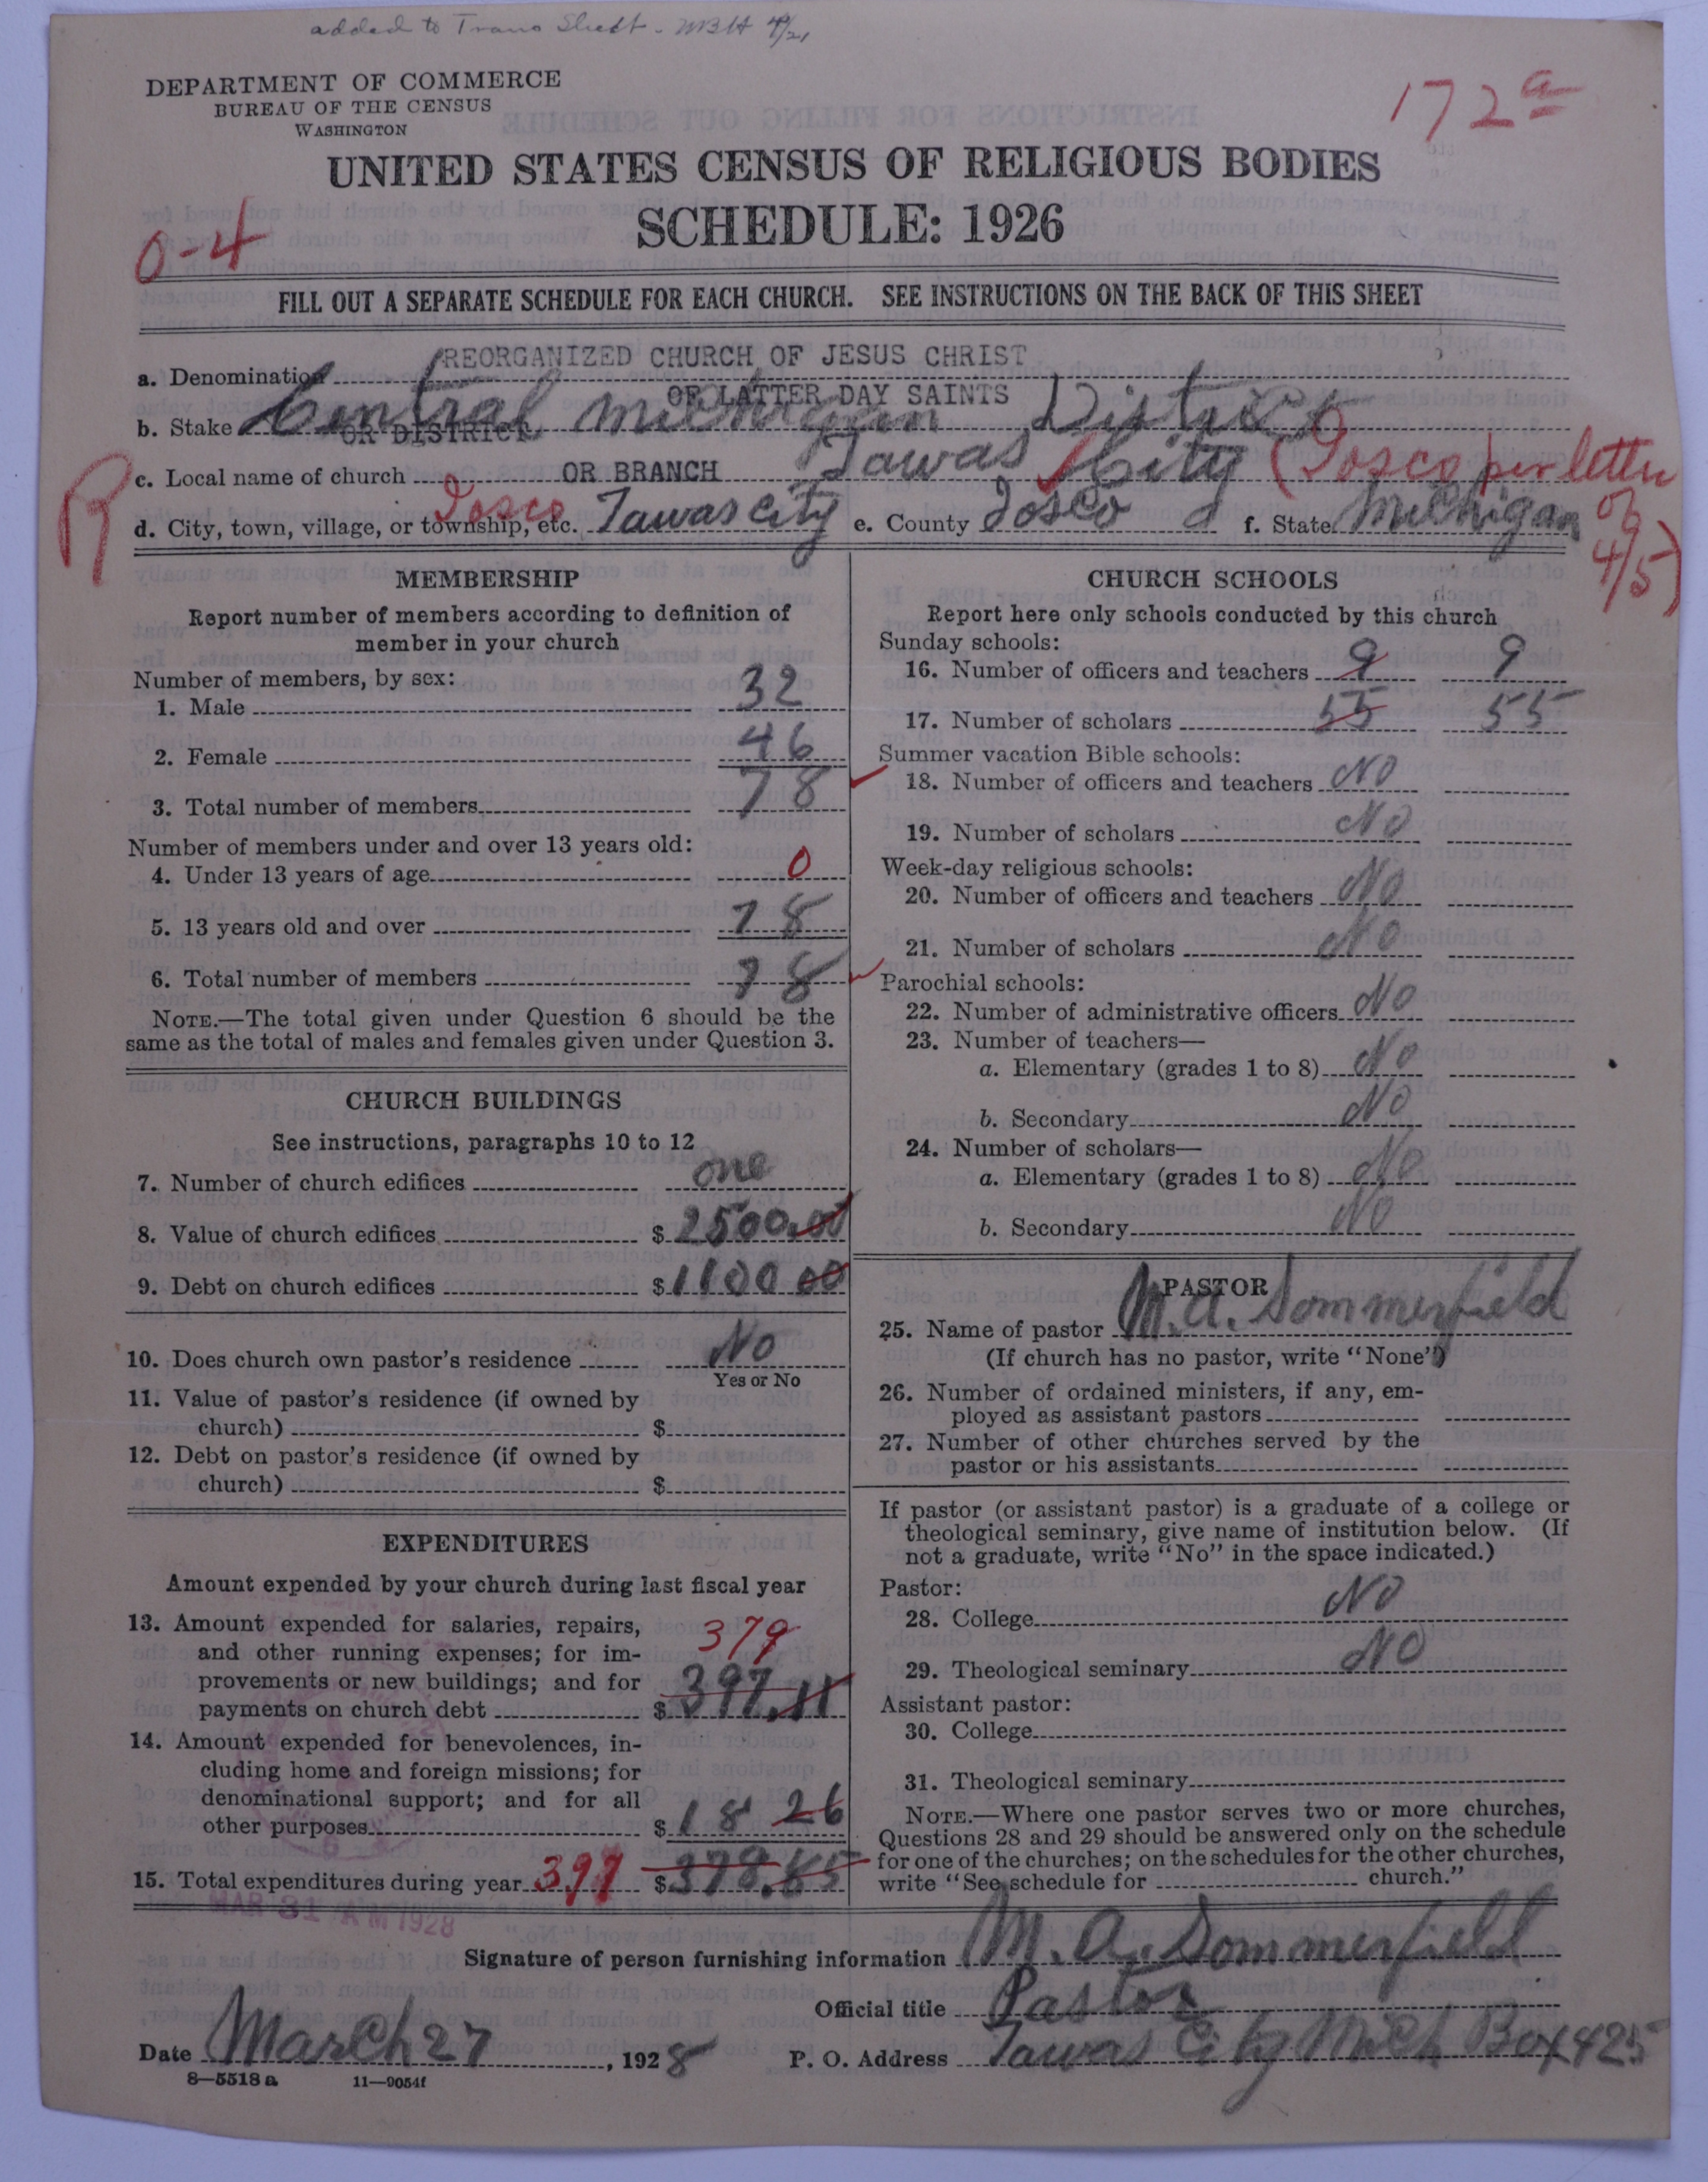 added to Trans Sheet - MBH 4/21
DEPARTMENT OF COMMERCE
BUREAU OF THE CENSUS
WASHINGTON
172a
UNITED STATES CENSUS OF RELIGIOUS BODIES
SCHEDULE: 1926
0-4
FILL OUT A SEPARATE SCHEDULE FOR EACH CHURCH. SEE INSTRUCTIONS ON THE BACK OF THIS SHEET
a. Denomination REORGANIZED CHURCH OF JESUS CHRIST
OF LATTER DAY SAINTS
b. Stake OR DISTRICT Central Michigan District
c. Local name of church OR BRANCH Tawas City (Iosco per letter of 4/5)
R
d. City, town, village, or township, etc. Iosco Tawas City e. County Iosco f. State Michigan
MEMBERSHIP
Report number of members according to definition of
member in your church
Number of members, by sex:
1. Male 32
2. Female 46
3. Total number of members 78
Number of members under and over 13 years old:
4. Under 13 years of age 0
5. 13 years old and over 78
6. Total number of members 78
NOTE.—The total given under Question 6 should be the
same as the total of males and females given under Question 3.
CHURCH BUILDINGS
See instructions, paragraphs 10 to 12
7. Number of church edifices one
8. Value of church edifices $2500.00
9. Debt on church edifices $1100 00
10. Does church own pastor's residence No
Yes or No
11. Value of pastor's residence (if owned by
church) $
12. Debt on pastor's residence (if owned by
church) $
EXPENDITURES
Amount expended by your church during last fiscal year
13. Amount expended for salaries, repairs,
and other running expenses; for im-
provements or new buildings; and for
payments on church debt 379 $397.11
14. Amount expended for benevolences, in-
cluding home and foreign missions; for
denominational support; and for all
other purposes $18 26
15. Total expenditures during year 397 $378.85
MAR 31 AM 1928
CHURCH SCHOOLS
Report here only schools conducted by this church
Sunday schools:
16. Number of officers and teachers 9 9
17. Number of scholars 55 55
Summer vacation Bible schools:
18. Number of officers and teachers No
19. Number of scholars No
Week-day religious schools:
20. Number of officers and teachers No
21. Number of scholars No
Parochial schools:
22. Number of administrative officers No
23. Number of teachers—
a. Elementary (grades 1 to 8) No
b. Secondary No
24. Number of scholars—
a. Elementary (grades 1 to 8) No
b. Secondary No
PASTOR
25. Name of pastor M. A. Sommerfield
(If church has no pastor, write "None")
26. Number of ordained ministers, if any, em-
ployed as assistant pastors
27. Number of other churches served by the
pastor or his assistants
If pastor (or assistant pastor) is a graduate of a college or
theological seminary, give name of institution below. (If
not a graduate, write "No" in the space indicated.)
Pastor:
28. College No
29. Theological seminary No
Assistant pastor:
30. College
31. Theological seminary
NOTE.—Where one pastor serves two or more churches,
Questions 28 and 29 should be answered only on the schedule
for one of the churches; on the schedules for the other churches,
write "See schedule for church."
Signature of person furnishing information M. A. Sommerfield
Official title Pastor
Date March 27, 1928 P. O. Address Tawas City Mich Box 425
8—5518 a 11—9054f